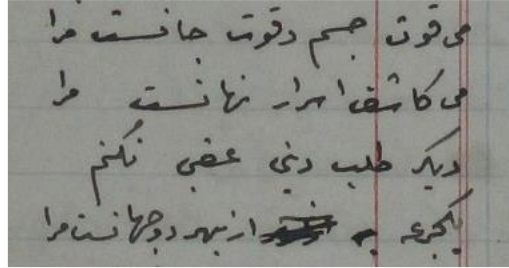 می قوت جسم و قوت جانست مرا
می کاشف اسرار نهانست مرا
دیگر طلب دنیی عقبی نکنم
یکجرعه به از بهر دو جهانست مرا